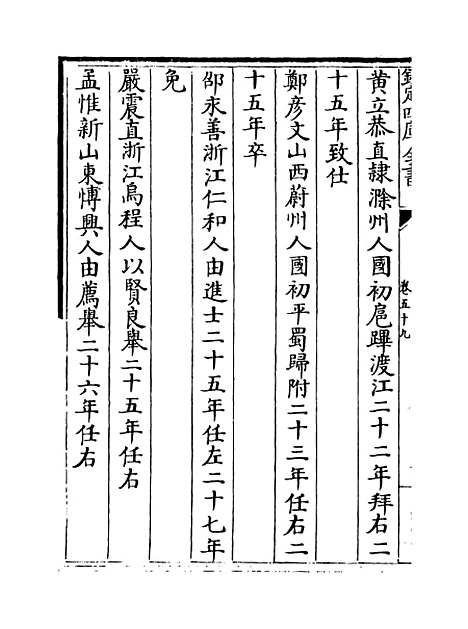 欽定四庫全書
卷五十九
黄立恭直隸滁州人國初扈蹕渡江二十二年拜右二
十五年致仕
鄭彦文山西蔚州人國初平蜀歸附二十三年任右二
十五年卒
邵永善浙江仁和人由進士二十五年任左二十七年
免
嚴震直浙江烏程人以賢良舉二十五年任右
孟惟新山東愽興人由薦舉二十六年任右